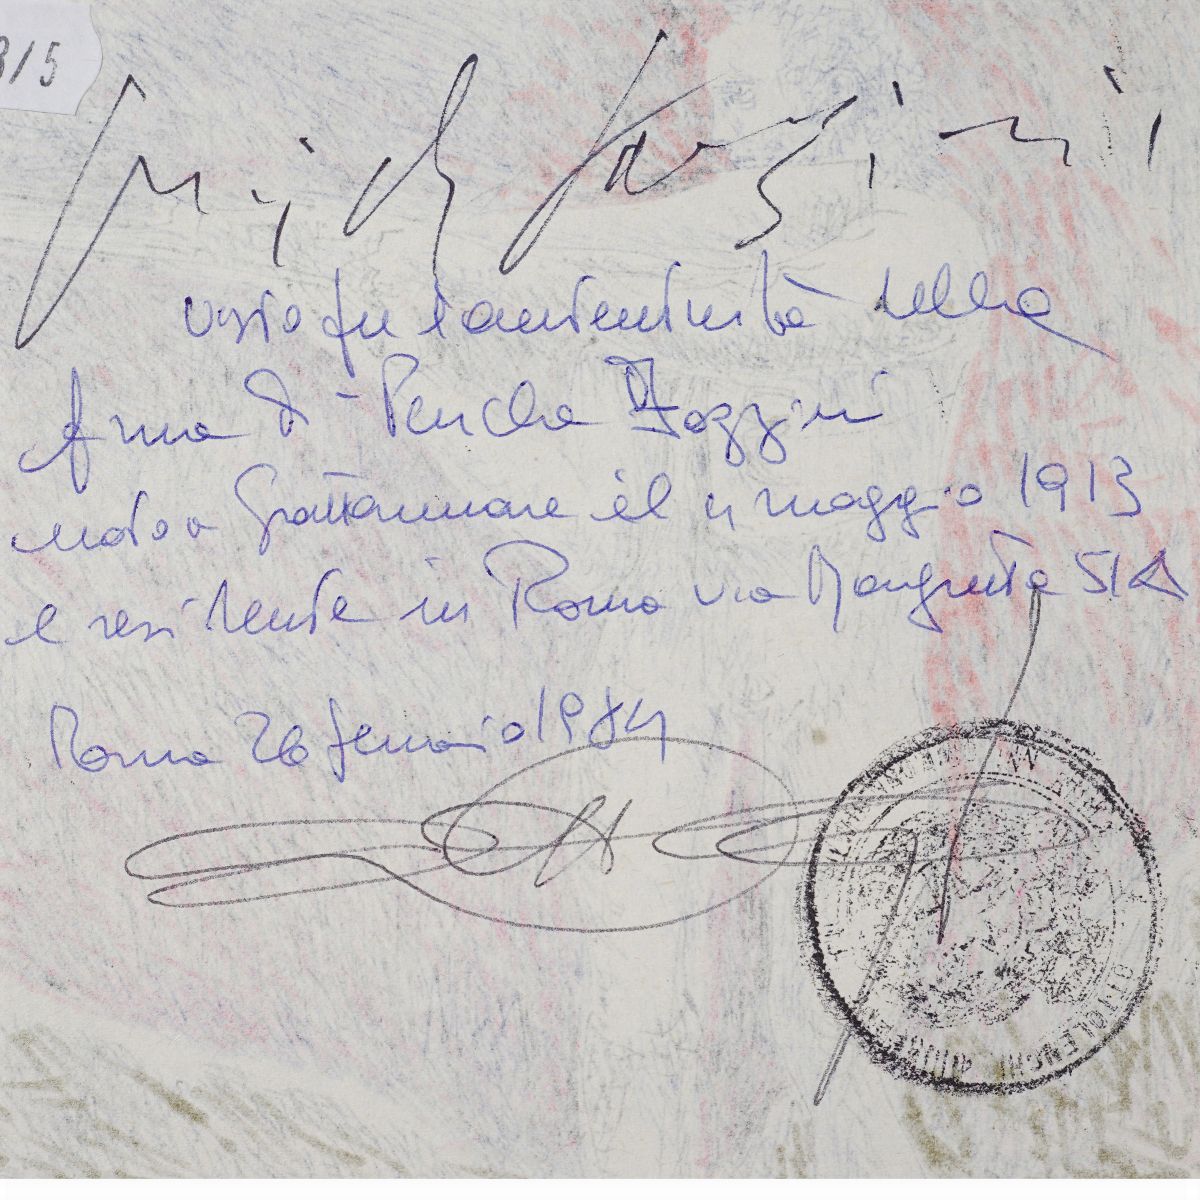 3/5
Pericle Fazzini
visto per l'autenticità della
firma di Pericle Fazzini
nato a Grottammare il 4 maggio 1913
e residente in Roma via Margutta 51A
Roma 26 gennaio 1984